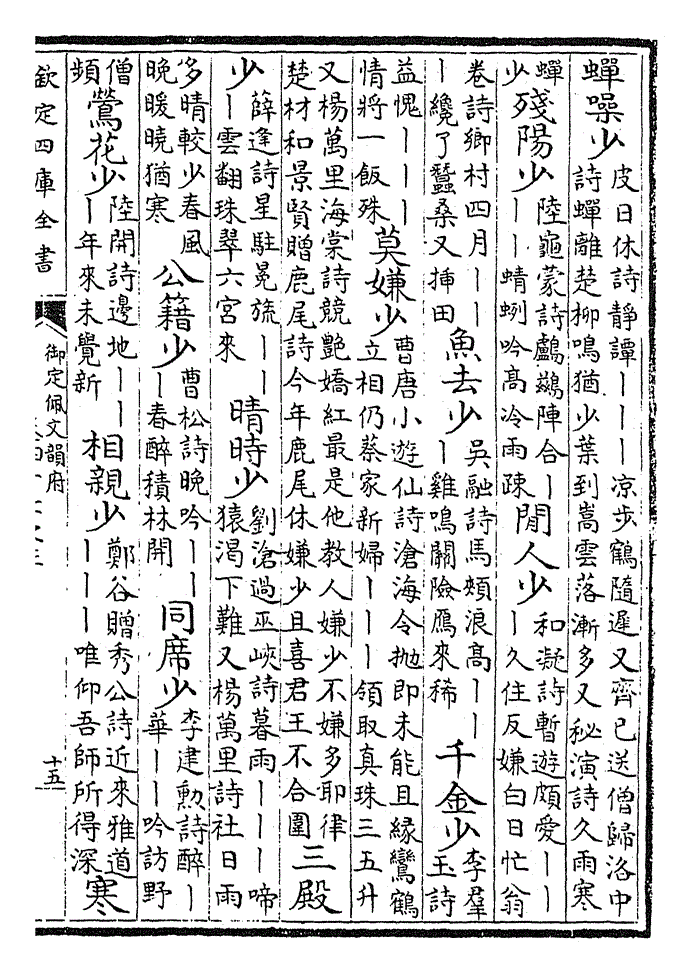 蟬噪少 皮日休詩靜譚丨丨丨凉步鶴隨遲又齊已送僧歸洛中
詩蟬離楚柳鳴猶少葉到嵩雲落漸多又秘演詩久雨寒
蟬
少 殘陽少 陸龜蒙詩鸕鷀陣合丨
丨丨蜻蛚吟髙冷雨疎 閒人少 和凝詩暫遊頗愛丨丨
丨久住反嫌白日忙翁
卷詩鄉村四月丨丨
丨纔了蠶桑又揷田 魚去少 吳融詩馬頰浪髙丨丨
丨雞鳴關險鴈來稀 千金少 李羣
玉詩
益愧丨丨丨
情將一飯殊 莫嫌少 曹唐小遊仙詩滄海令抛即未能且縁鸞鶴
立相仍蔡家新婦丨丨丨領取真珠三五升
又楊萬里海棠詩競艶嬌紅最是他教人嫌少不嫌多耶律
楚材和景賢贈鹿尾詩今年鹿尾休嫌少且喜君王不合圍 三殿
少 薛逢詩星駐晃旒丨丨
丨雲翻珠翠六宮來 晴時少 劉滄過巫峽詩暮雨丨丨丨啼
猿渴下難又楊萬里詩社日雨
多晴較少春風
晚暖曉猶寒 公籍少 曹松詩晚吟丨丨
丨春醉積林開 同席少 李建勲詩醉丨
華丨丨吟訪野
僧
頻 鶯花少 陸開詩邊地丨丨
丨年來未覺新 相親少 鄭谷贈秀公詩近來雅道
丨丨丨唯仰吾師所得深 寒
欽定四庫全書
御定佩文韻府
十五